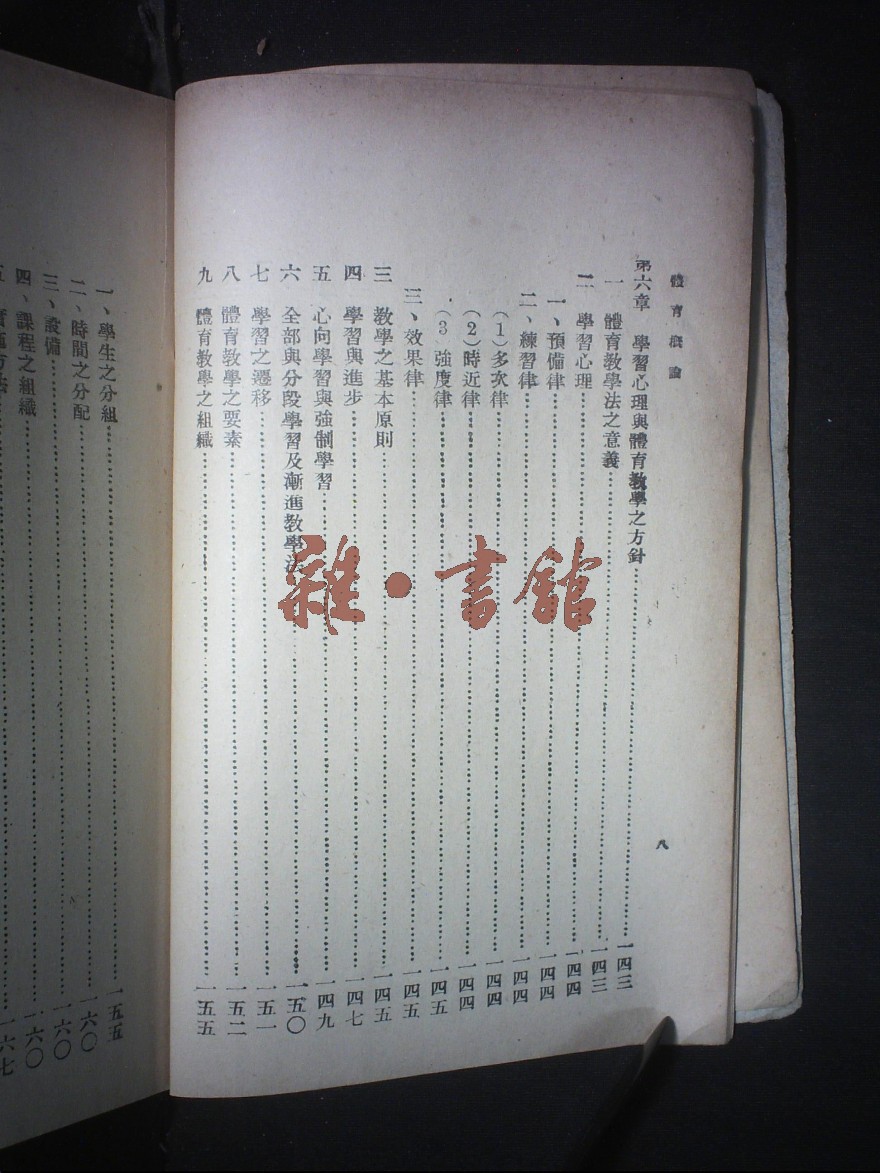 體育概論
八
第六章　學習心理與體育教學之方針……一四三
一　體育教學法之意義……一四三
二　學習心理……一四四
一、預備律……一四四
二、練習律……一四四
（1）多次律……一四四
（2）時近律……一四四
（3）強度律……一四五
三、效果律……一四五
三　教學之基本原則……一四五
四　學習與進步……一四七
五　心向學習與強制學習……一四九
六　全部與分段學習及漸進教學法……一五〇
七　學習之遷移……一五一
八　體育教學之要素……一五二
九　體育教學之組織……一五五
一、學生之分組……一五五
二、時間之分配……一六〇
三、設備……一六〇
四、課程之組織……一六〇
五、實施方法……一六七
雜·書館